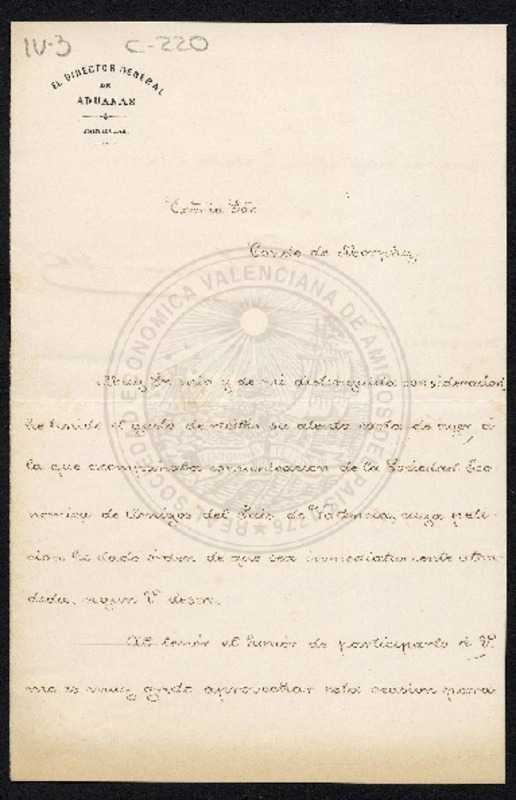 IV-3 C-220
EL DIRECTOR GENERAL
DE
ADUANAS
PARTICULAR
Excmo Sor
Conde de
Muy Sr mio y de mi distinguida consideracion,
he tenido el gusto de recibir su atenta carta de ayer, á
la que acompañaba comunicacion de la Sociedad Eco
nomica de Amigos del Pais de Valencia, cuya peti-
cion he dado órden de que sea inmediatamente aten-
dida, segun V. desea.
Al tener el honor de participarlo á V.
me es muy grato aprovechar esta ocasion para
REAL SOCIEDAD ECONOMICA VALENCIANA DE AMIGOS DEL PAIS 1776